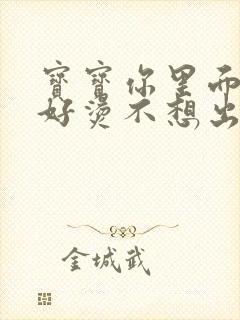 寶寶你里面
好燙不想出
金城武